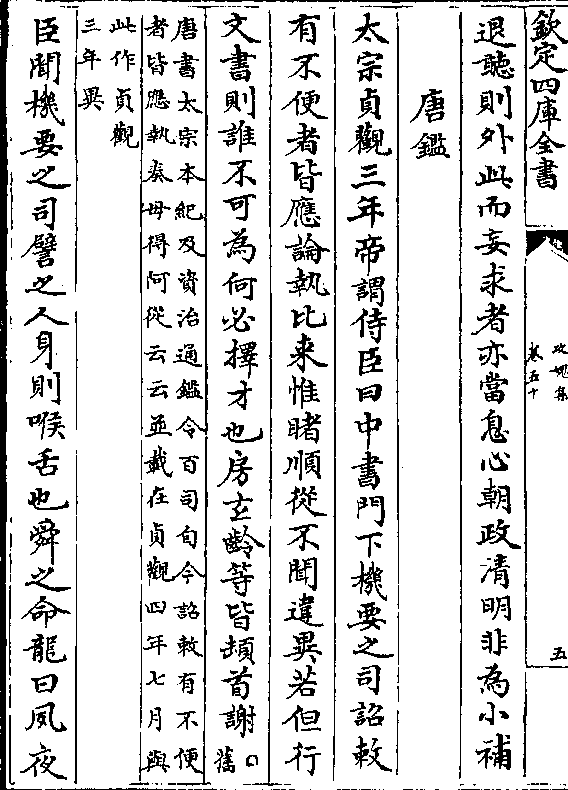 欽定四庫全書
攻媿集
卷五十
五
退聽則外此而妄求者亦當息心朝政清明非為小補
唐鑑
太宗貞觀三年帝謂侍臣曰中書門下機要之司詔敕
有不便者皆應論執比来惟睹順從不聞違異若但行
文書則誰不可為何必擇才也房玄齡等皆頓首謝舊
唐書太宗本紀及資治通鑑令百司自今詔敕有不便
者皆應執奏毋得阿從云云並載在貞觀四年七月與
此作貞觀
三年異
臣聞機要之司譬之人身則喉舌也舜之命龍曰夙夜